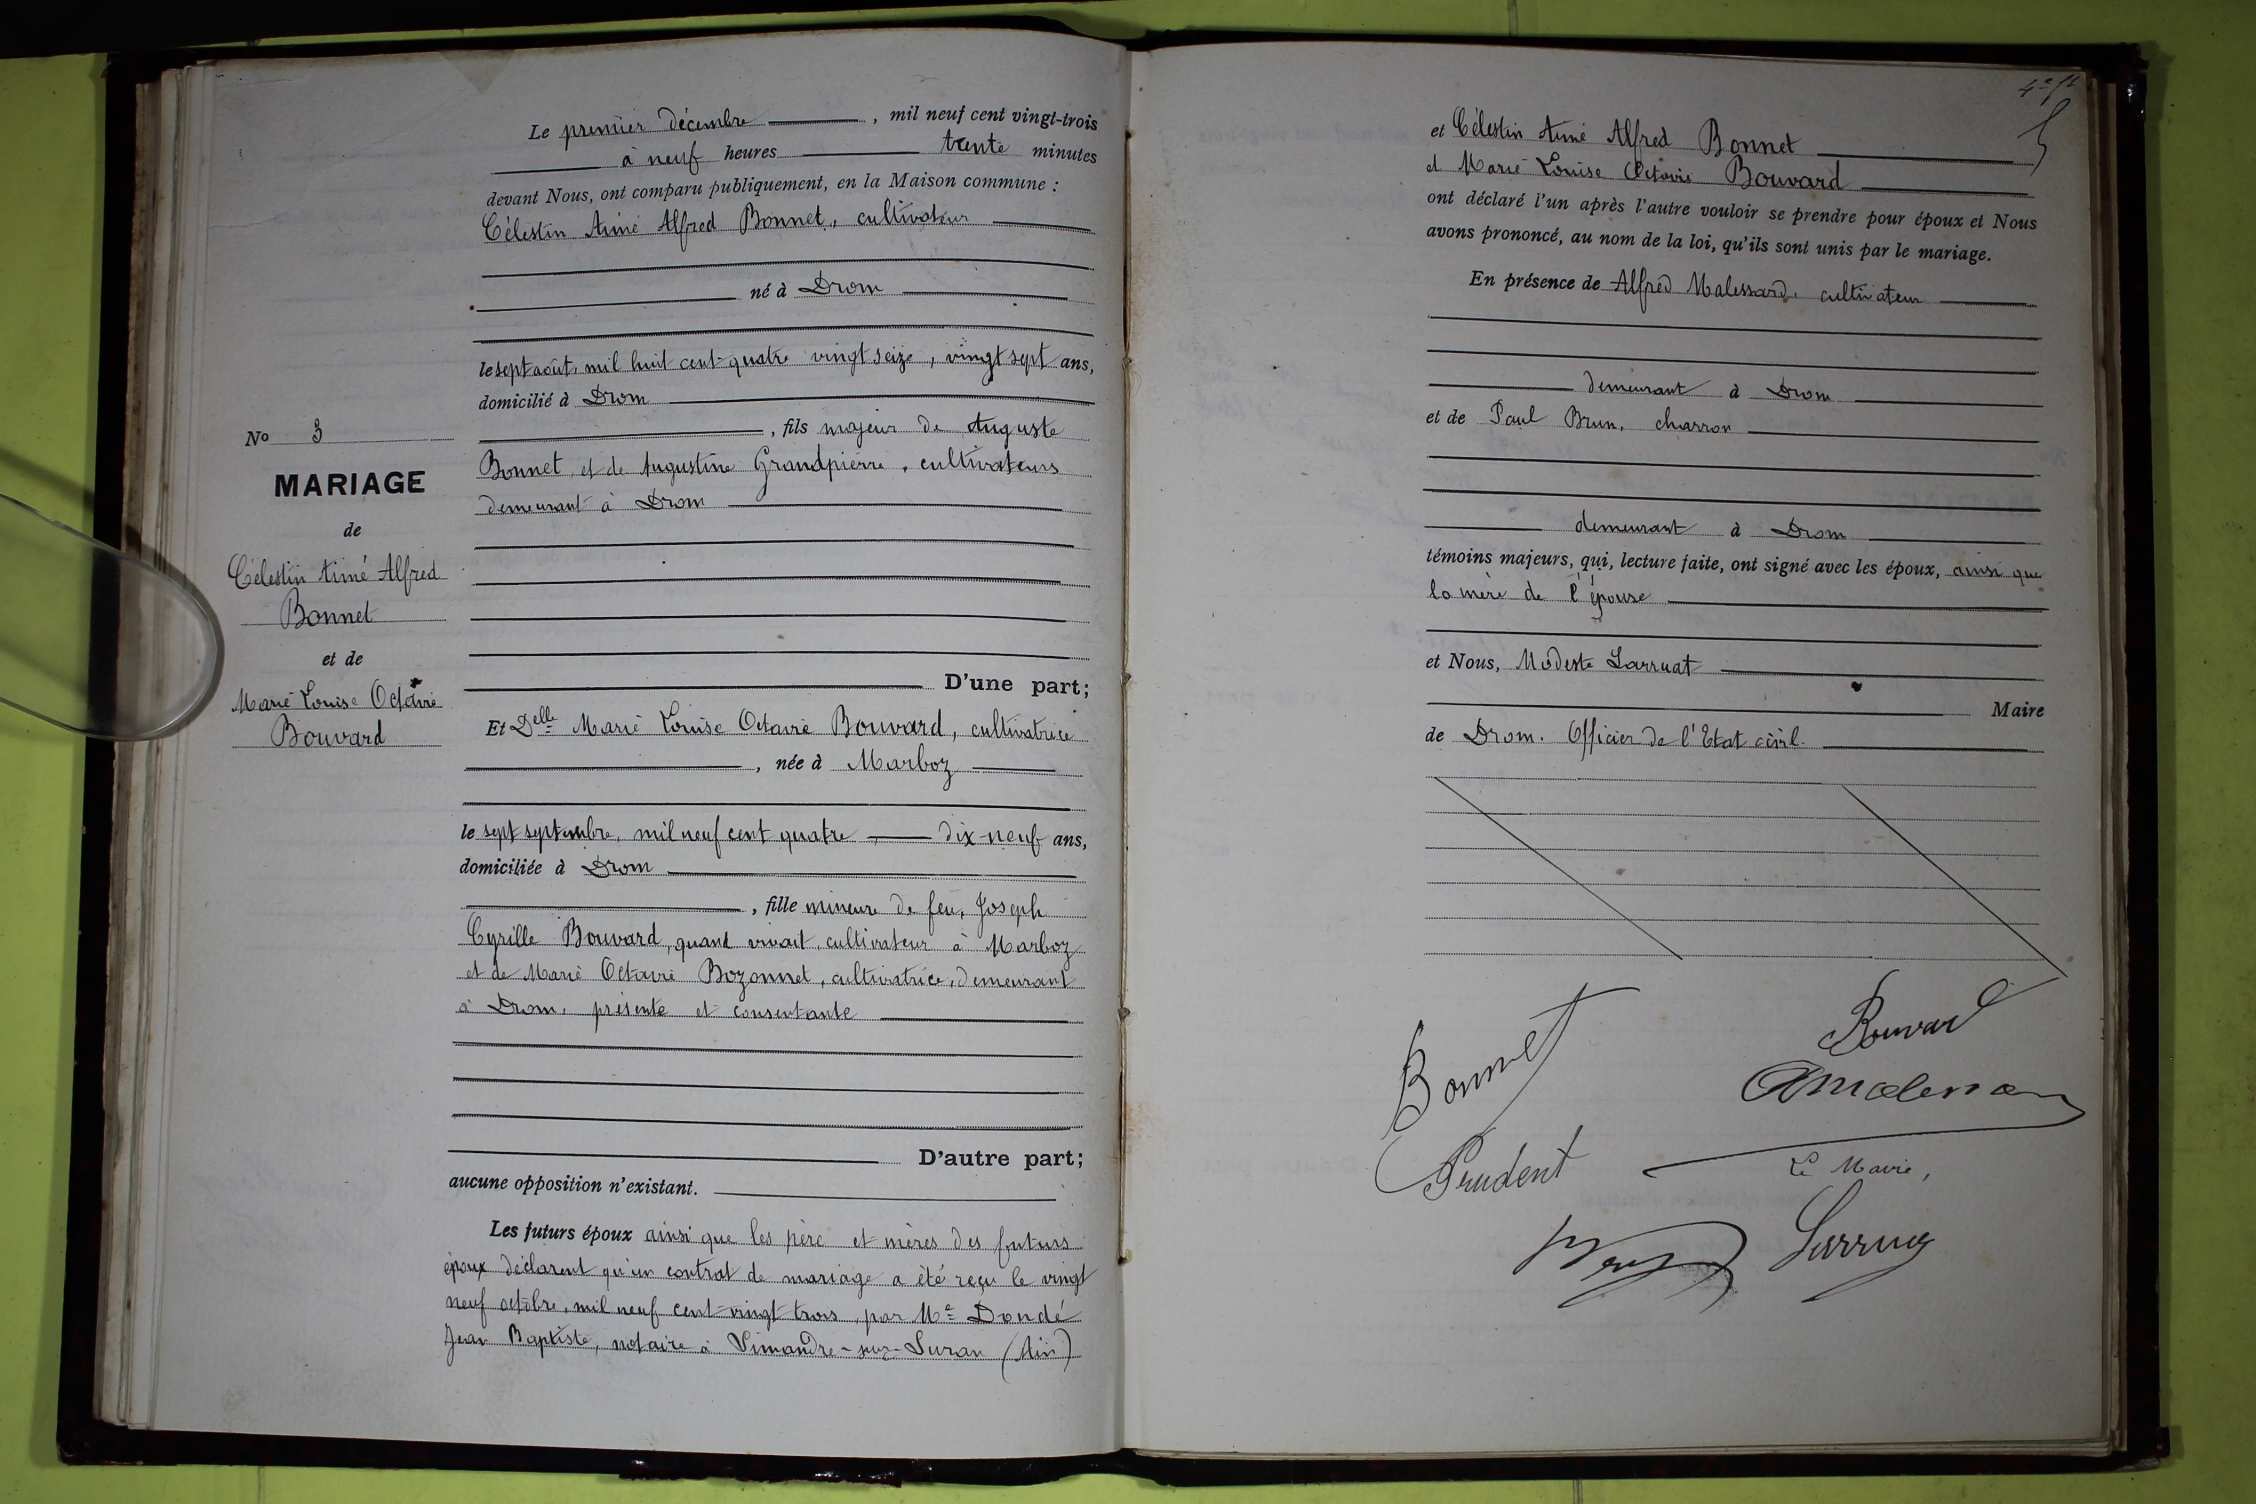 Le premier décembre, mil neuf cent vingt-trois
à neuf heures trente minutes
devant Nous, ont comparu publiquement, en la Maison commune :
Célestin Aimé Alfred Bonnet, cultivateur
né à Drom
le sept août, mil huit cent quatre vingt seize, vingt sept ans,
domicilié à Drom
, fils majeur de Auguste
Bonnet et de Augustine Grandpierre, cultivateurs
demeurant à Drom
D'une part;
Et Delle Marie Louise Octavie Bouvard, cultivatrice
, née à Marboz
le sept septembre, mil neuf cent quatre dix-neuf ans,
domiciliée à Drom
, fille mineure de feu, Joseph
Cyrille Bouvard, quand vivait, cultivateur à Marboz
et de Marie Octavie Bozonnet, cultivatrice, demeurant
à Drom, présente et consentante
D'autre part;
aucune opposition n'existant.
Les futurs époux ainsi que les père et mères des futurs
époux déclarent qu'un contrat de mariage a été reçu le vingt
neuf octobre, mil neuf cent vingt trois, par Me Dondé
Jean Baptiste, notaire à Simandre-sur-Suran (Ain)
No 3
MARIAGE
de
Célestin Aimé Alfred
Bonnet
et de
Marie Louise Octavie
Bouvard
et Célestin Aimé Alfred Bonnet
et Marie Louise Octavie Bouvard
ont déclaré l'un après l'autre vouloir se prendre pour époux et Nous
avons prononcé, au nom de la loi, qu'ils sont unis par le mariage.
En présence de Alfred Malessard, cultivateur
demeurant à Drom
et de Paul Brun, charron
demeurant à Drom
témoins majeurs, qui, lecture faite, ont signé avec les époux, ainsi que
la mère de l'épouse
et Nous, Modeste Larruat
Maire
de Drom. Officier de l'Etat civil.
Bonnet
Bouvard
Prudent
Le Maire,